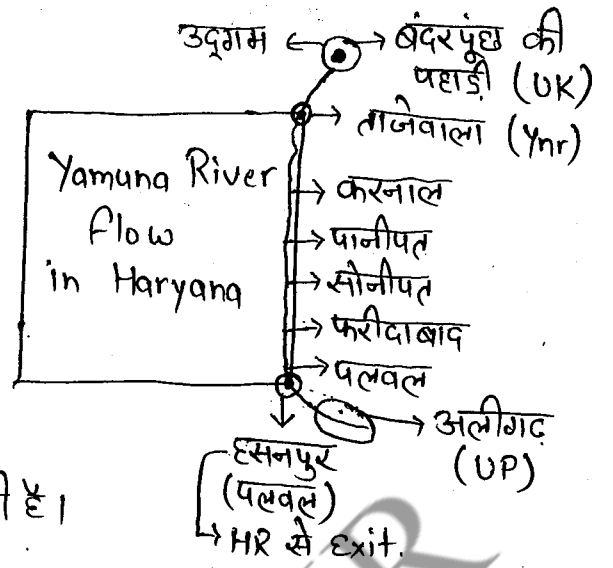 उद्गम
बंदरपूंछ की
पहाड़ी (UK)
ताजेवाला (Ynr)
Yamuna River
flow
in Haryana
करनाल
पानीपत
सोनीपत
फरीदाबाद
पलवल
अलीगढ़
(UP)
हसनपुर
(पलवल)
HR से Exit.
है।